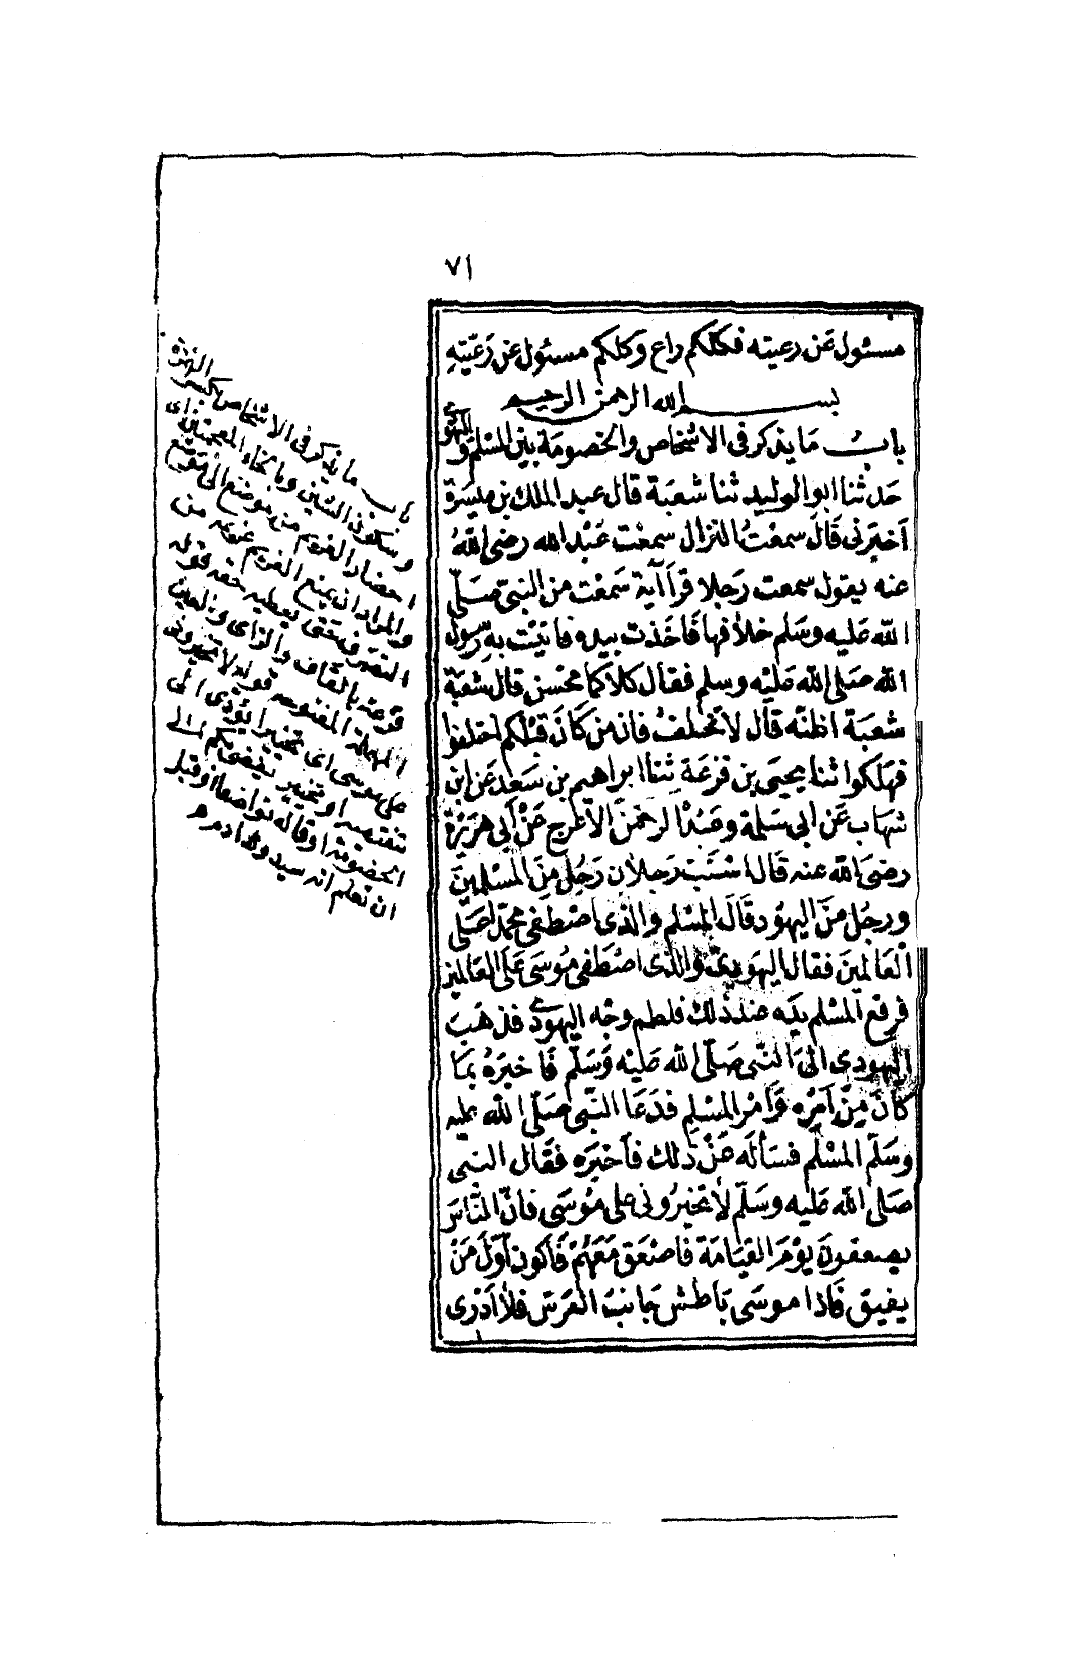 ٧١
مسئول عَن رعيته فكلكم راع وكلكم مسئول عن رَعيّتهِ
بسم الله الرحمن الرحيم
باب مَا يذكر فى الاشخاص والخصومَة بين المسْلم وَ اليهودى
حَدثنا ابو الوليد ثنا شعبَة قال عبد الملك بن ميسرَة
أخبَرنى قالَ سمعْتُ النزال سمعْت عَبْد الله رضى اللهُ
عنه يقول سمعت رَجلا قرأ آية سَمعْت من النبى صَلّى
الله عَليه وسَلم خلافها فاَخذت بيده فاتيْت بهِ رسُول
الله صَلى الله عَليْه وسلم فقال كلاكما محْسن قال شعبَة
شعبَة اظنّه قال لا تختلفُوا فان من كانَ قبْلكم اختلفوا
فهَلكوا ثنا يحيَى بن قزعَة ثنا ابراهيم بن سَعد عَن ابن
شهاب عَن ابى سَلمة وعبْد الرحمنَ الأعرج عَنْ أبى هرَيْرَة
رضىَ الله عنه قال اسْتَبّ رَجلان رَجُل مِنَ المسْلمينَ
ورجُل منَ اليهُود قالَ المسْلم والذى اصْطفى محمّدًا عَلى
العَالمينَ فقال اليهوديّ والذى اصْطَفى مُوسَى عَلَى العَالمين
فرفع المسْلم يدَه عند ذلك فلطم وجْه اليهودى فذهَبَ
اليهودى الىَ النبّى صَلّى الله عَليْه وَسَلّم فَاخبرَهُ بمَا
كانَ مِنْ امرِه وَامْر المسْلم فدَعَا النّبى صَلّى الله عليه
وسَلّم المسْلم فسَألَه عَنْ ذلك فأخبَره فقال النبى
صَلى الله عَليه وسَلّم لا تخيّرُونى على مُوسَى فانّ النّاسَ
يصعقونَ يوْمَ القيَامَة فَاصْعَق مَعَهُمْ فَاكون أوّلَ مَنْ
يفيق فَاذا موسَى بَاطش جَانبَ العَرش فلا أدْرى
باب ما يذكر فى الاشخاص بكسر الهمزة
وسكون الشين وبالخاء المعجمتين اى
احضار الغريم من موضع الى موضع
والمراد ان يمنع الغريم غريمه من
التصرف حتى يعطيه حقه قوله
قزعة بالقاف والزاى والعين
المهملة المفتوحة قوله لا تخيرونى
على موسى اى تخييرا يؤدى الى
تنقيصه او تخيير يفضى بكم الى
الخصومة او قاله تواضعا او قبل
ان يعلم انه سيد ولد ادم